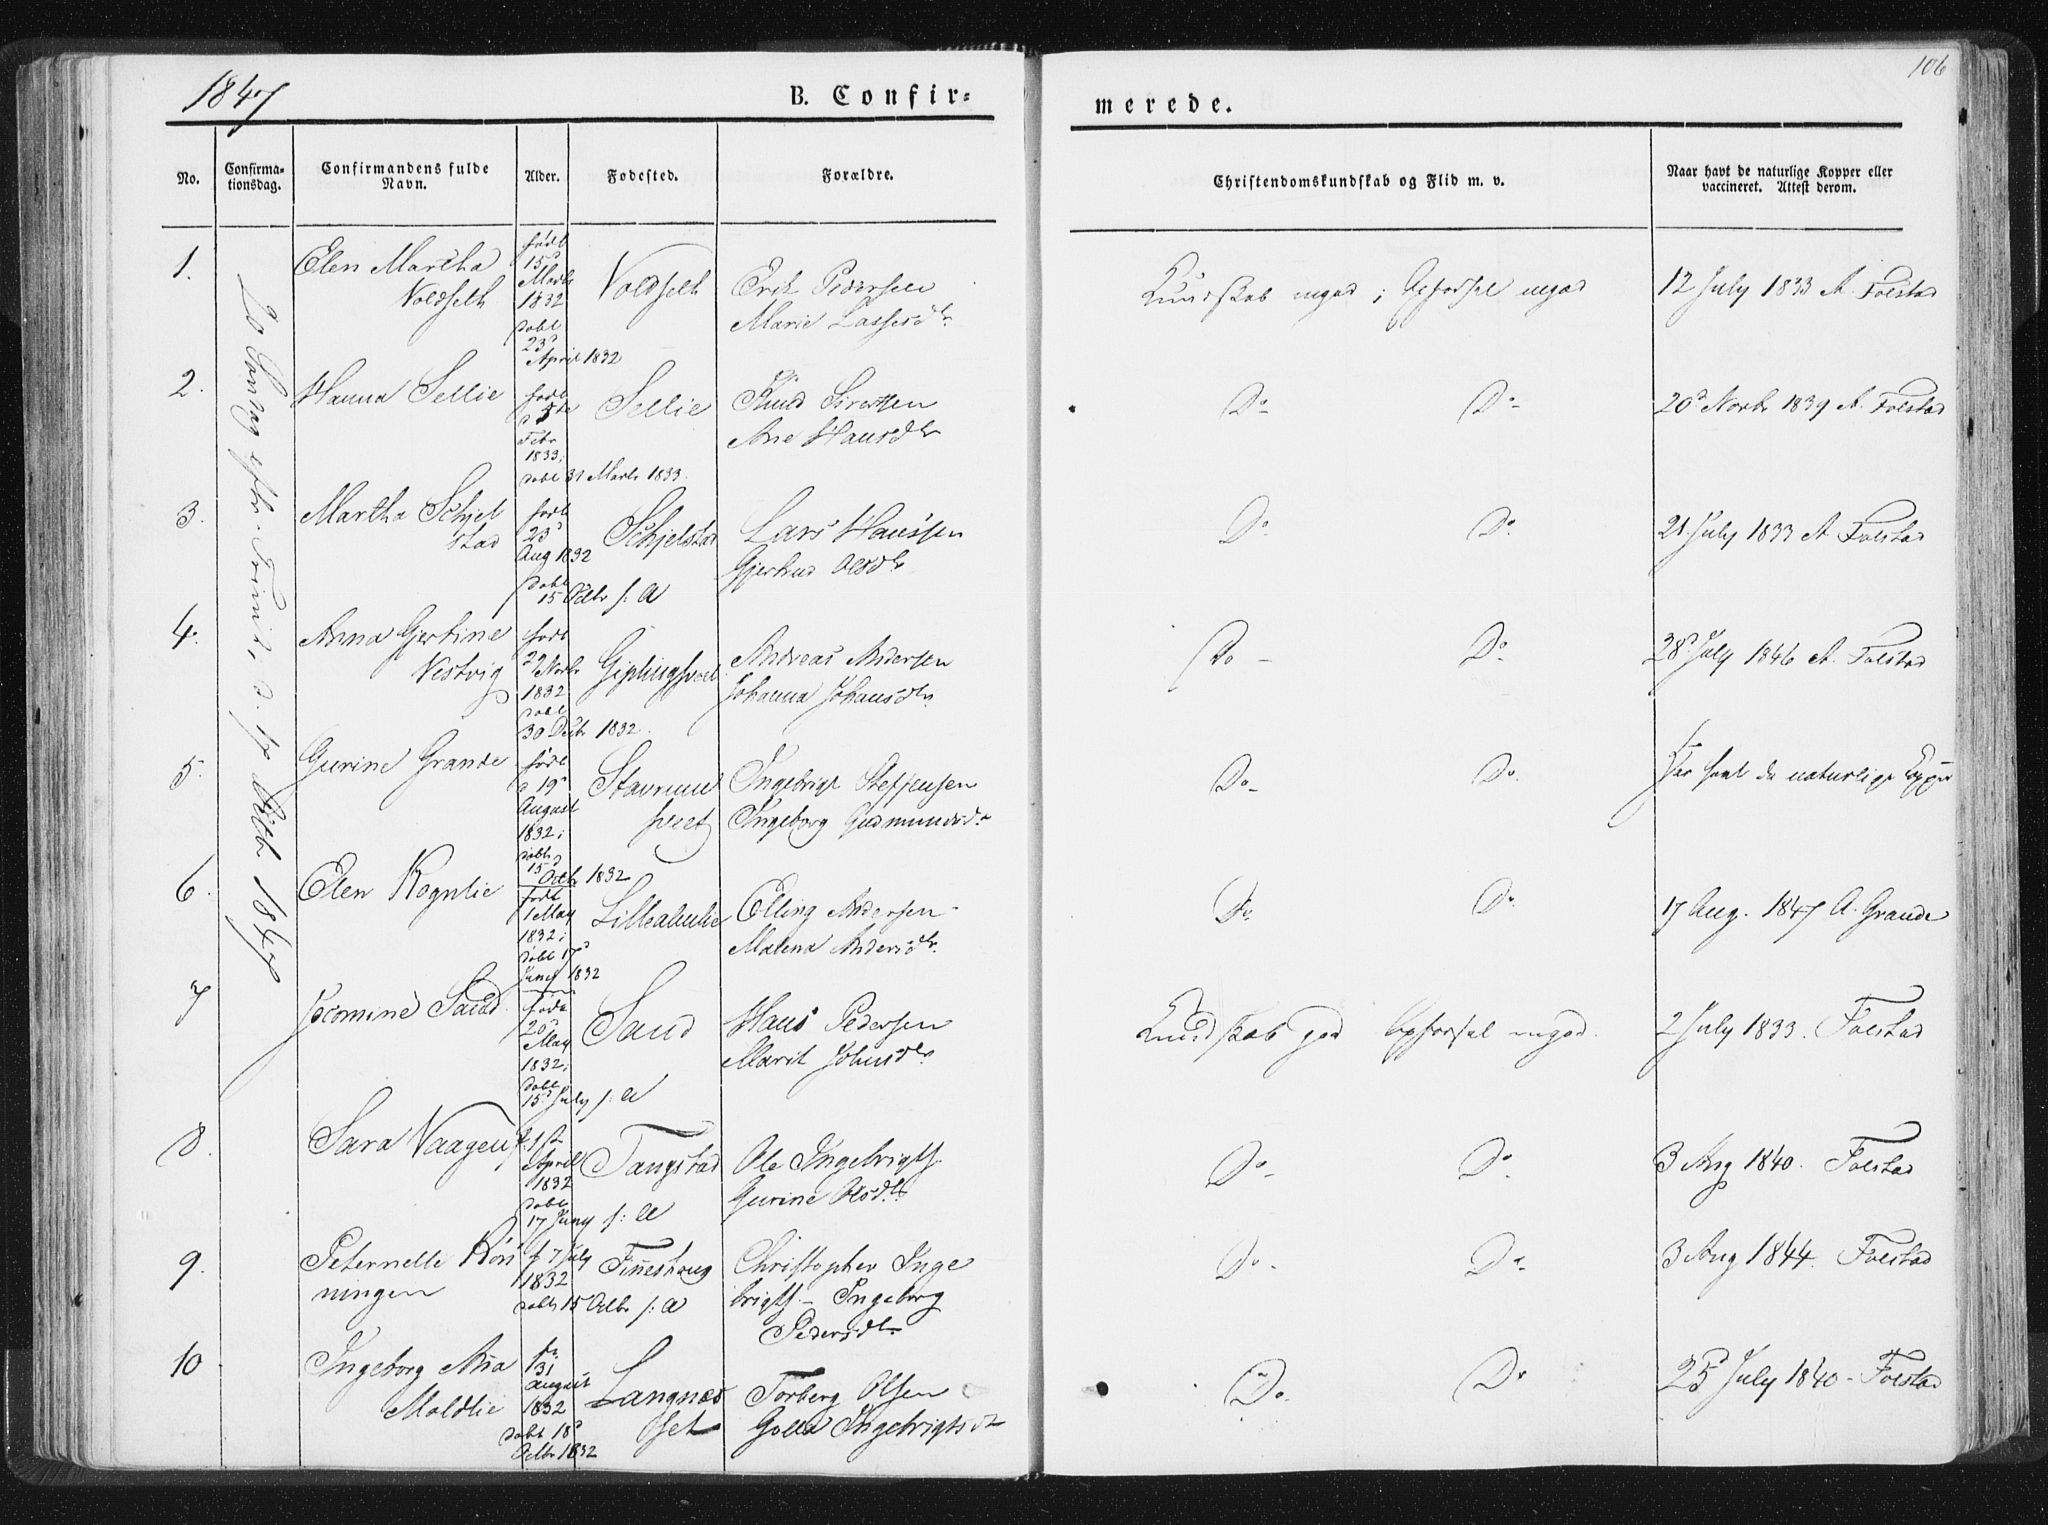 1847
B. Confir=
merede.
106
No.
Confirma-
tionsdag.
Confirmandens fulde
Navn.
Alder.
Fødested.
Forældre.
Christendomskundskab og Flid m. v.
Naar havt de naturlige Kopper eller
vaccineret. Attest derom.
20 Søndag efter Trinit. d. 17 Octbr 1847
1.
Elen Martha
Voldseth
født
15d
Marts
1832
døbt
23d
April 1832
Voldseth
Erik Pedersen
Marie Lassesdtr
Kundskab mgod; Opførsel mgod
12 July 1833 A. Folstad
2.
Hanna Sellie
født
Febr
1833;
døbt 31 Marts 1833.
Sellie
Knud Sivertsen
Ane Hansdtr
Do
Do
20d Novbr 1839 A. Folstad
3.
Martha Schjel
stad
født
23d
Aug 1832
døbt
15 Octbr s: A
Schjelstad
Lars Hanssen
Gjertrud Olsdtr
Do
Do
21 July 1833 A Folstad
4.
Anna Gjertine
Vestvig
født
Novbr
1832
døbt
30 Decbr 1832.
Andreas Andersen
Johanna Johansdtr
Do
Do
28d July 1846 A. Folstad
5.
Gurine Grande
født
d 19d
August
1832;
døbt
15d
Octbr 1832
Ingebrigt Steffensen
Ingeborg Gudmundsdr
Do
Do
Har havt de naturlige Kopper
6.
Elen Rognlie
født
1 May
1832;
døbt 17d
Juny 1832
Elling Andersen
Malena Andersdtr
Do
Do
17 Aug. 1847 A. Grande
7
Jacomine Sand
født
20d
May
1832;
døbt
15d July s: A
Sand
Hans Pedersen
Marit Johnsdtr
Kundskab god Opførsel mgod.
2 July 1833. Folstad
8.
Sara Vaagen
f. 1st
April
1832
døbt
17 Juny s: A
Tangstad
Ole Ingebrigts.
Gurine Olsdtr
Do
Do
3 Aug 1840. Folstad
9.
Peternelle Røn
ningen
f. 7 July
1832
døbt 15 Octbr s: A
Finneshaug
Christopher Inge
brigts. - Ingeborg
Pedersdtr
Do
Do
3 Aug 1844. Folstad
10
Ingeborg Ana
Moldlie
f.
31
August
1832
døbt 18d
Octbr 1832
Langnæs
set
Torberg Olsen
Golla Ingebrigtsdt
Do
Do
25d July 1840 - Folstad